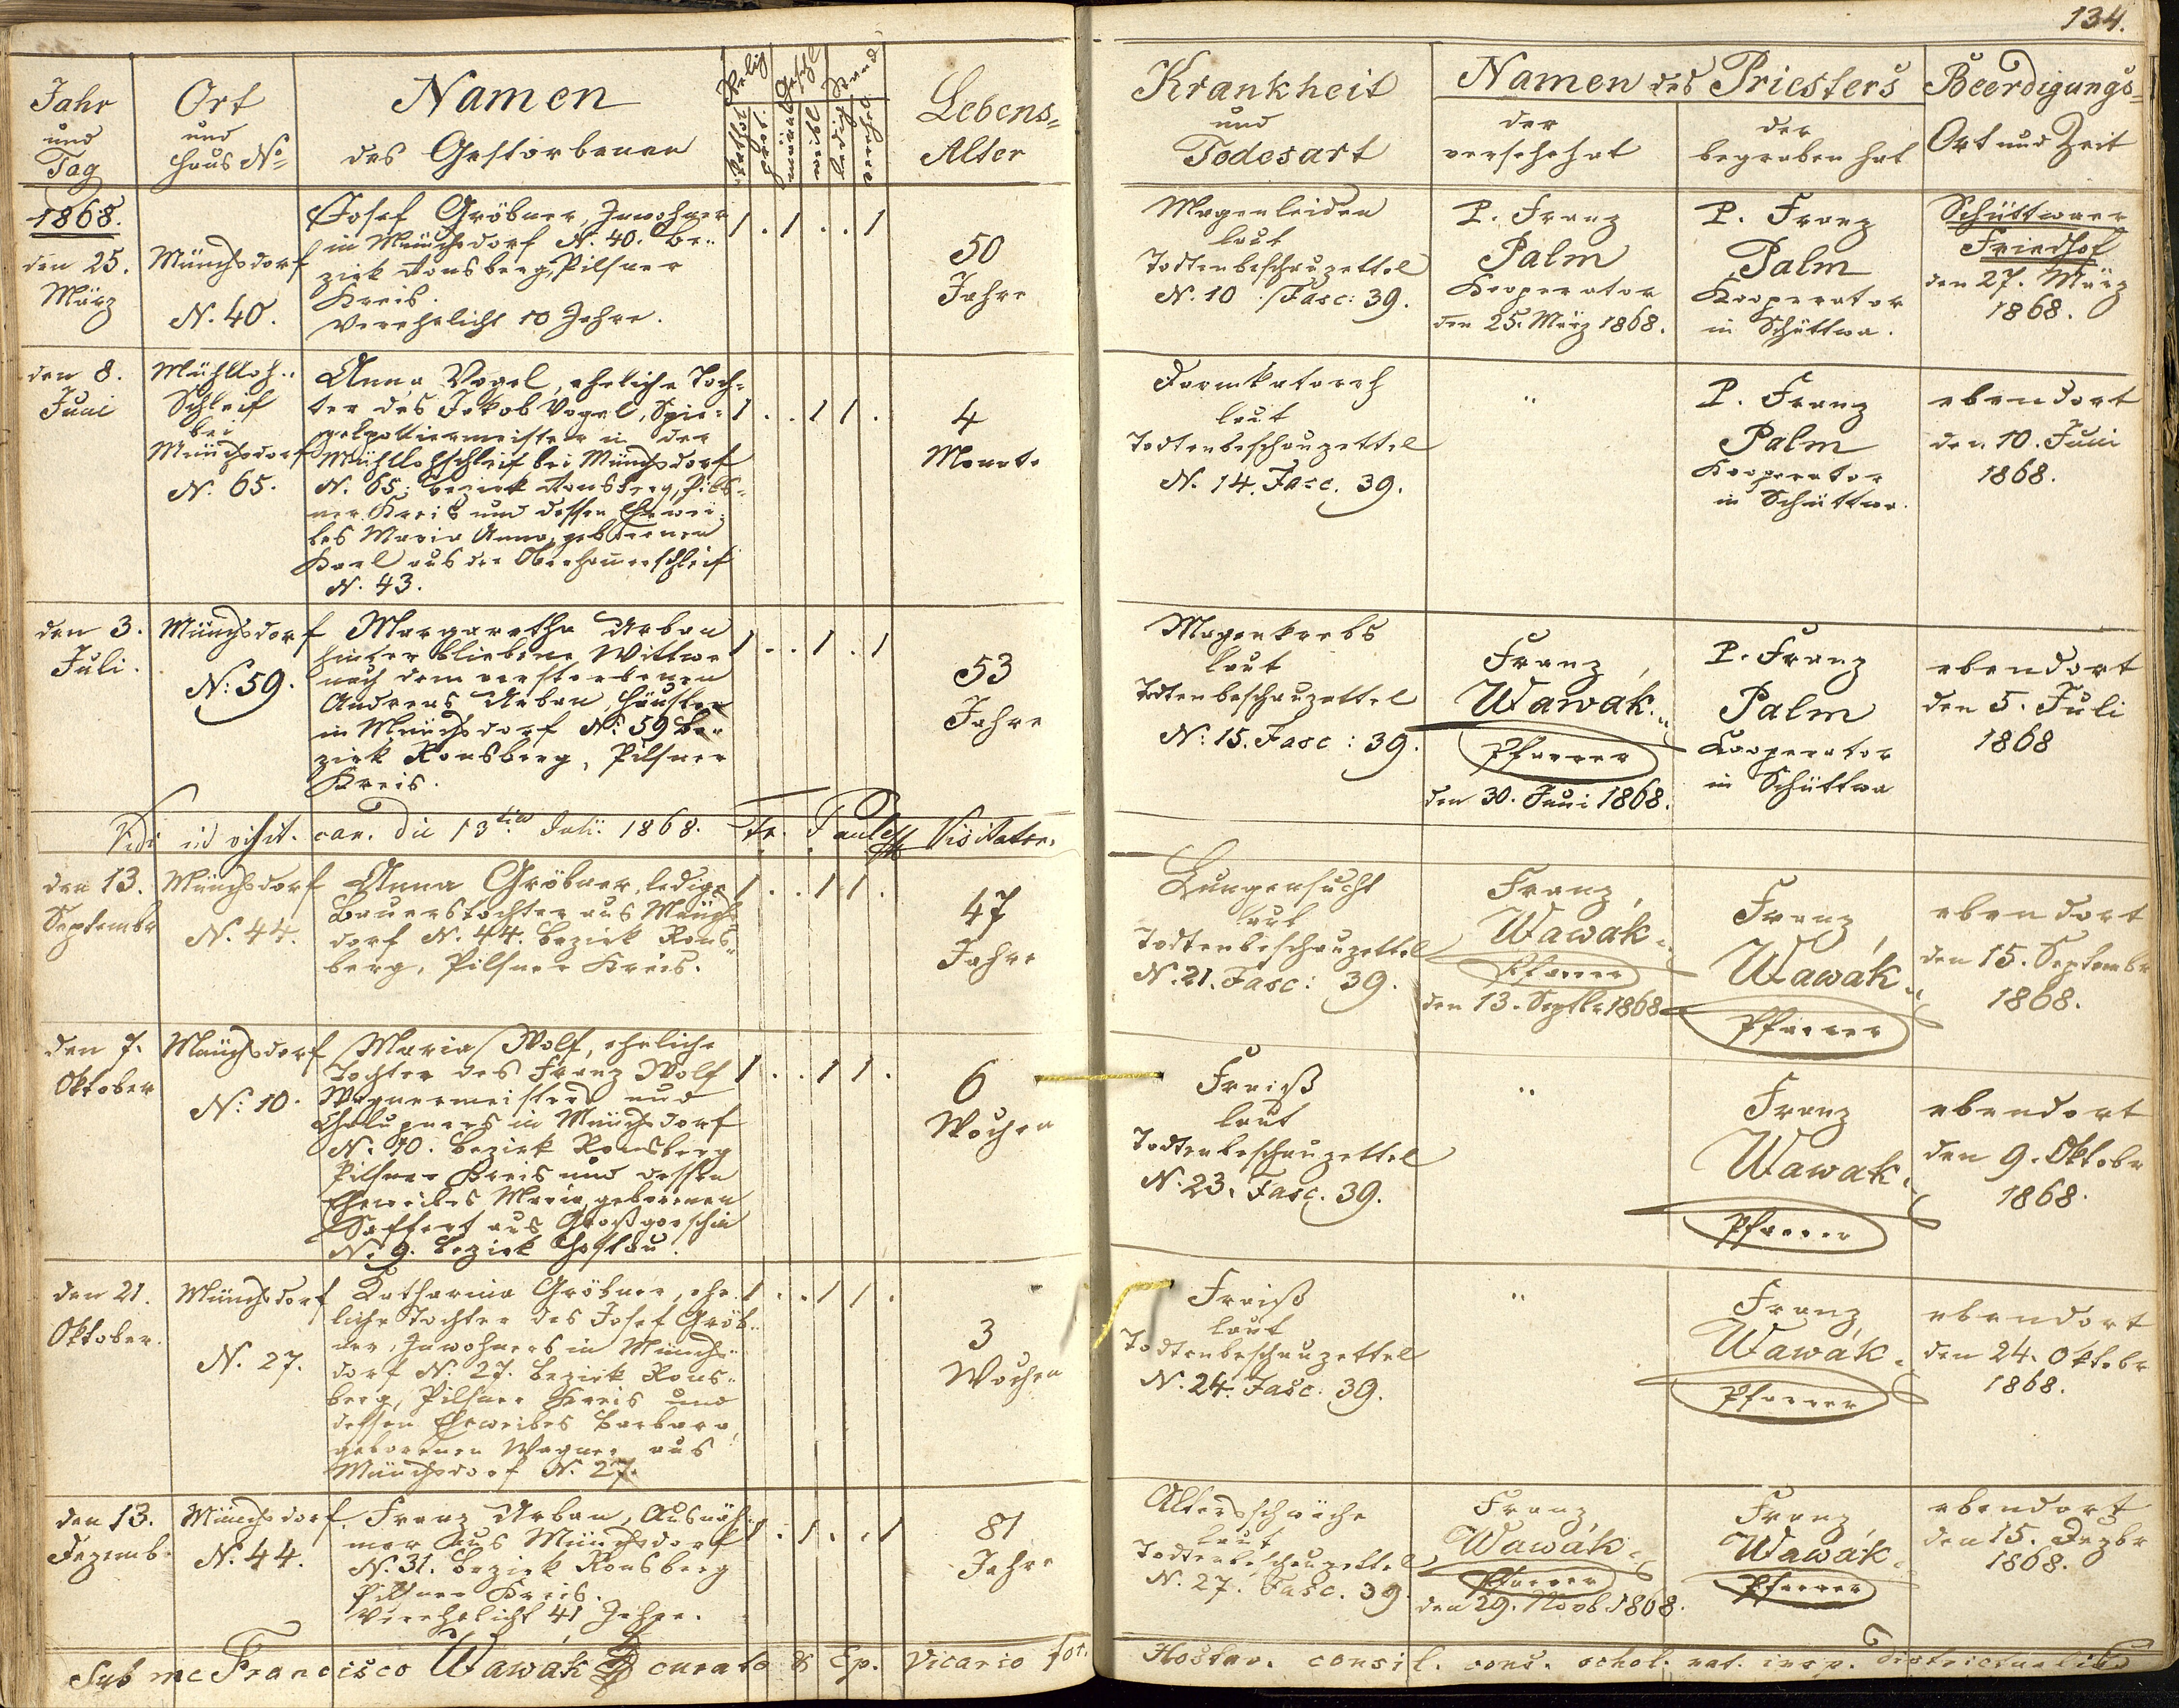 134.
Jahr
und
Tag
Ort
und
Haus No
Namen
des Gestorbenen
Relig
kathol.
prot.
Geschl
männl.
weibl.
Stand
ledig
verehel.
Lebens=
Alter
Krankheit
und
Todesart
Namen des Priesters
der
versehe hat
der
begraben hat
Beerdigungs=
Ort und Zeit
1868.
den 25.
März
Münchsdorf
N. 40.
Josef Gröbner, Inwohner
in Münchsdorf N. 40. Be..
zirk Ronsberg, Pilsner
Kreis.
Verehelicht 10 Jahre.
1 . 1 . . 1
50
Jahre
Magenleiden
laut
Todtenbeschauzettel
N. 10 /Fasc: 39.
P. Franz
Palm
Kooperator
den 25. März 1868.
P. Franz
Palm
Kooperator
in Schüttwa.
Schüttwaer
Friedhof
den 27. März
1868.
den 8.
Juni
Mühlloh..
Schleif
bei
Münchsdorf
N. 65.
Anna Vogel, eheliche Toch=
ter des Jakob Vogel, Spie=
gelpoliermeister in der
Mühllohschleif bei Münchsdorf
N. 65. Bezirk Ronsberg, Pils=
ner Kreis und dessen Ehewei=
bes Maria Anna, geborenen
Karl aus der Oberhammerschleif
N. 43.
1 . . 1 1 .
4
Monate
Darmkatarrh
laut
Todtenbeschauzettel
N. 14. Fasc. 39.
"
P. Franz
Palm
Kooperator
in Schüttwa.
ebendort
den 10. Juni
1868.
den 3.
Juli.
Münchsdorf
N: 59.
Margaretha Urban
hinterbliebene Wittwe
nach dem verstorbenen
Andreas Urban, Häusler
in Münchsdorf N: 59 Be..
zirk Ronsberg, Pilsner
Kreis.
1 . . 1 . 1
53
Jahre
Magenkrebs
laut
Todtenbeschauzettel
N: 15. Fasc: 39.
Franz
Wawák
Pfarrer
den 30. Juni 1868.
P. Franz
Palm
Kooperator
in Schüttwa
ebendort
den 5. Juli
1868
Vidi in visit. can. die 13tia Julii 1868. Fr. Paul Visitator.
den 13.
Septembr
Münchsdorf
N. 44.
Anna Gröbner, ledige
Bauerstochter aus Münchs
dorf N. 44. Bezirk Rons"
berg, Pilsner Kreis.
1 . . 1 1 .
47
Jahre
Lungensucht
laut
Todtenbeschauzettel
N. 21. Fasc: 39.
Franz
Wawák
Pfarrer
den 13. Septbr 1868
Franz
Wawák
Pfarrer
ebendort
den 15. Septembr
1868.
den 7.
Oktober
Münchsdorf
N: 10.
Maria Wolf, eheliche
Tochter des Franz Wolf
Wagnermeisters und
Chalupners in Münchsdorf
N. 10. Bezirk Ronsberg
Pilsner Kreis und dessen
Eheweibes Maria, geborenen
Seffert aus Großgorschin
N. 9. Bezirk Hostau.
1 . . 1 1 .
6
Wochen
Fraiß
laut
Todtenbeschauzettel
N. 23. Fasc. 39.
"
Franz
Wawak
Pfarrer
ebendort
den 9. Oktobr
1868.
den 21.
Oktober.
Münchsdorf
N. 27.
Katharina Gröbner, ehe
liche Tochter des Josef Gröb..
ner, Inwohners in Münchs..
dorf N: 27. Bezirk Rons..
berg, Pilsner Kreis und
dessen Eheweibes Barbara,
geborenen Wagner aus
Münchsdorf N. 27.
1 . . 1 1 .
3
Wochen
Fraiß
laut
Todtenbeschauzettel
N. 24. Fasc: 39.
"
Franz
Wawák
Pfarrer
ebendort
den 24. Oktobr
1868.
den 13.
Dezemb.
Münchsdorf
N. 44.
Franz Urban, Ausnäh
mer aus Münchsdorf
N. 31. Bezirk Ronsberg
Pilsner Kreis.
Verehelicht 41 Jahre.
1 . 1 . . 1
81
Jahre
Altersschwäche
laut
Todtenbeschauzettel
N. 27. Fasc. 39
Franz
Wawák
Pfarrer
den 29. Novb. 1868.
Franz
Wawák
Pfarrer
ebendort
den 15. Dezbr
1868.
Sub me Francisco Wawák curato & Ep. Vicario for. Hostav. consil. cons. schol. nat. insp. districtuali